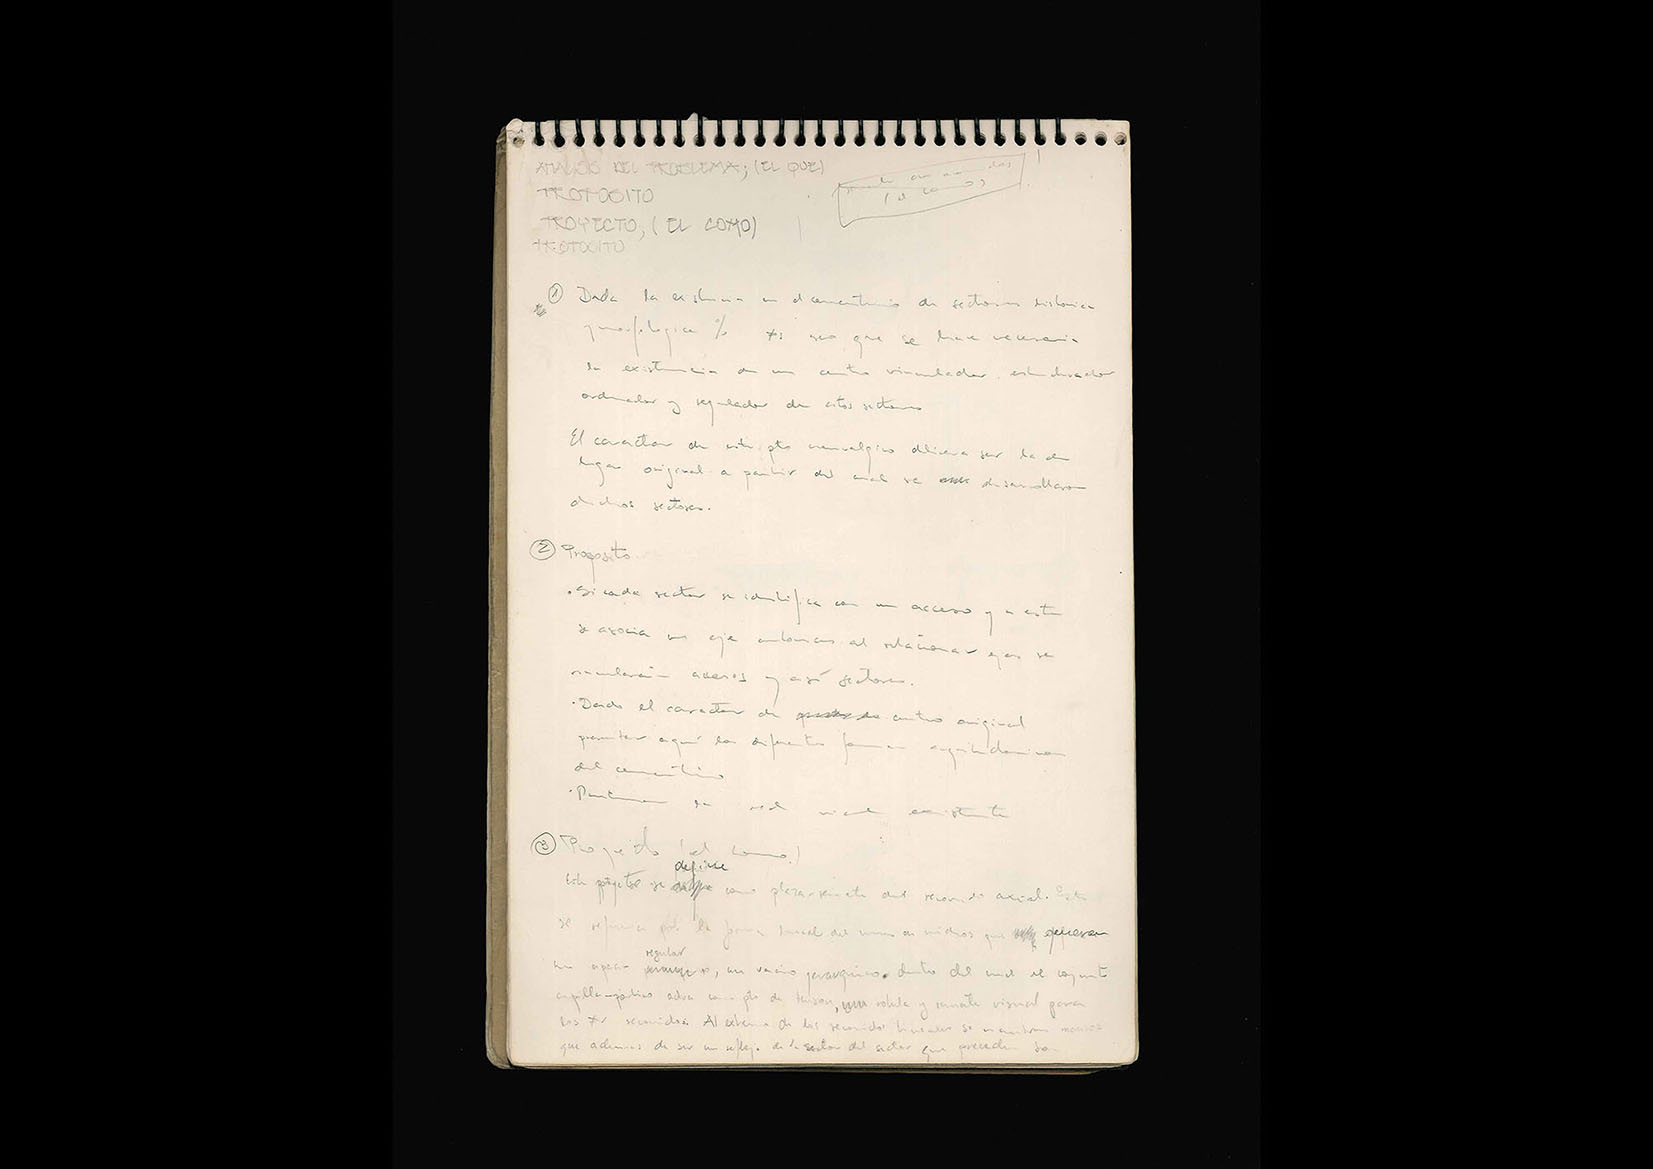 ANALISIS DEL PROBLEMA; (EL QUE)
PROPOSITO
PROYECTO, (EL COMO)
PROPOSITO
(el como)
1 Dada la existencia en el cementerio de sectores historica
y morfologica % ≠s creo que se hace necesaria
la existencia de un centro vinculador
ordenador y regulador de estos sectores
El caracter de este pto neuralgico debiera ser la de
lugar original a partir del cual se desarrollaron
dichos sectores.
2 Proposito
• Si cada sector se identifica con un acceso y a este
se asocia un eje entonces al relacionar ejes se
vincularán accesos y así sectores.
• Dado el caracter de centro original
presentar aquí las diferentes formas arquitectonicas
del cementerio
• red vial existente
3 Proyecto (el como)
definir
Este proyecto se como plaza-remate del recorrido axial. Este
se por la forma lineal del muro de nichos que
regular
un espacio, un vacio jerarquico. dentro del cual el conjunto
capilla-portico como pto de tension, rotula y remate visual para
los ≠s recorridos. Al extremo de los recorridos lineales se encuentran
que ademas de ser un reflejo del sector que preceden son